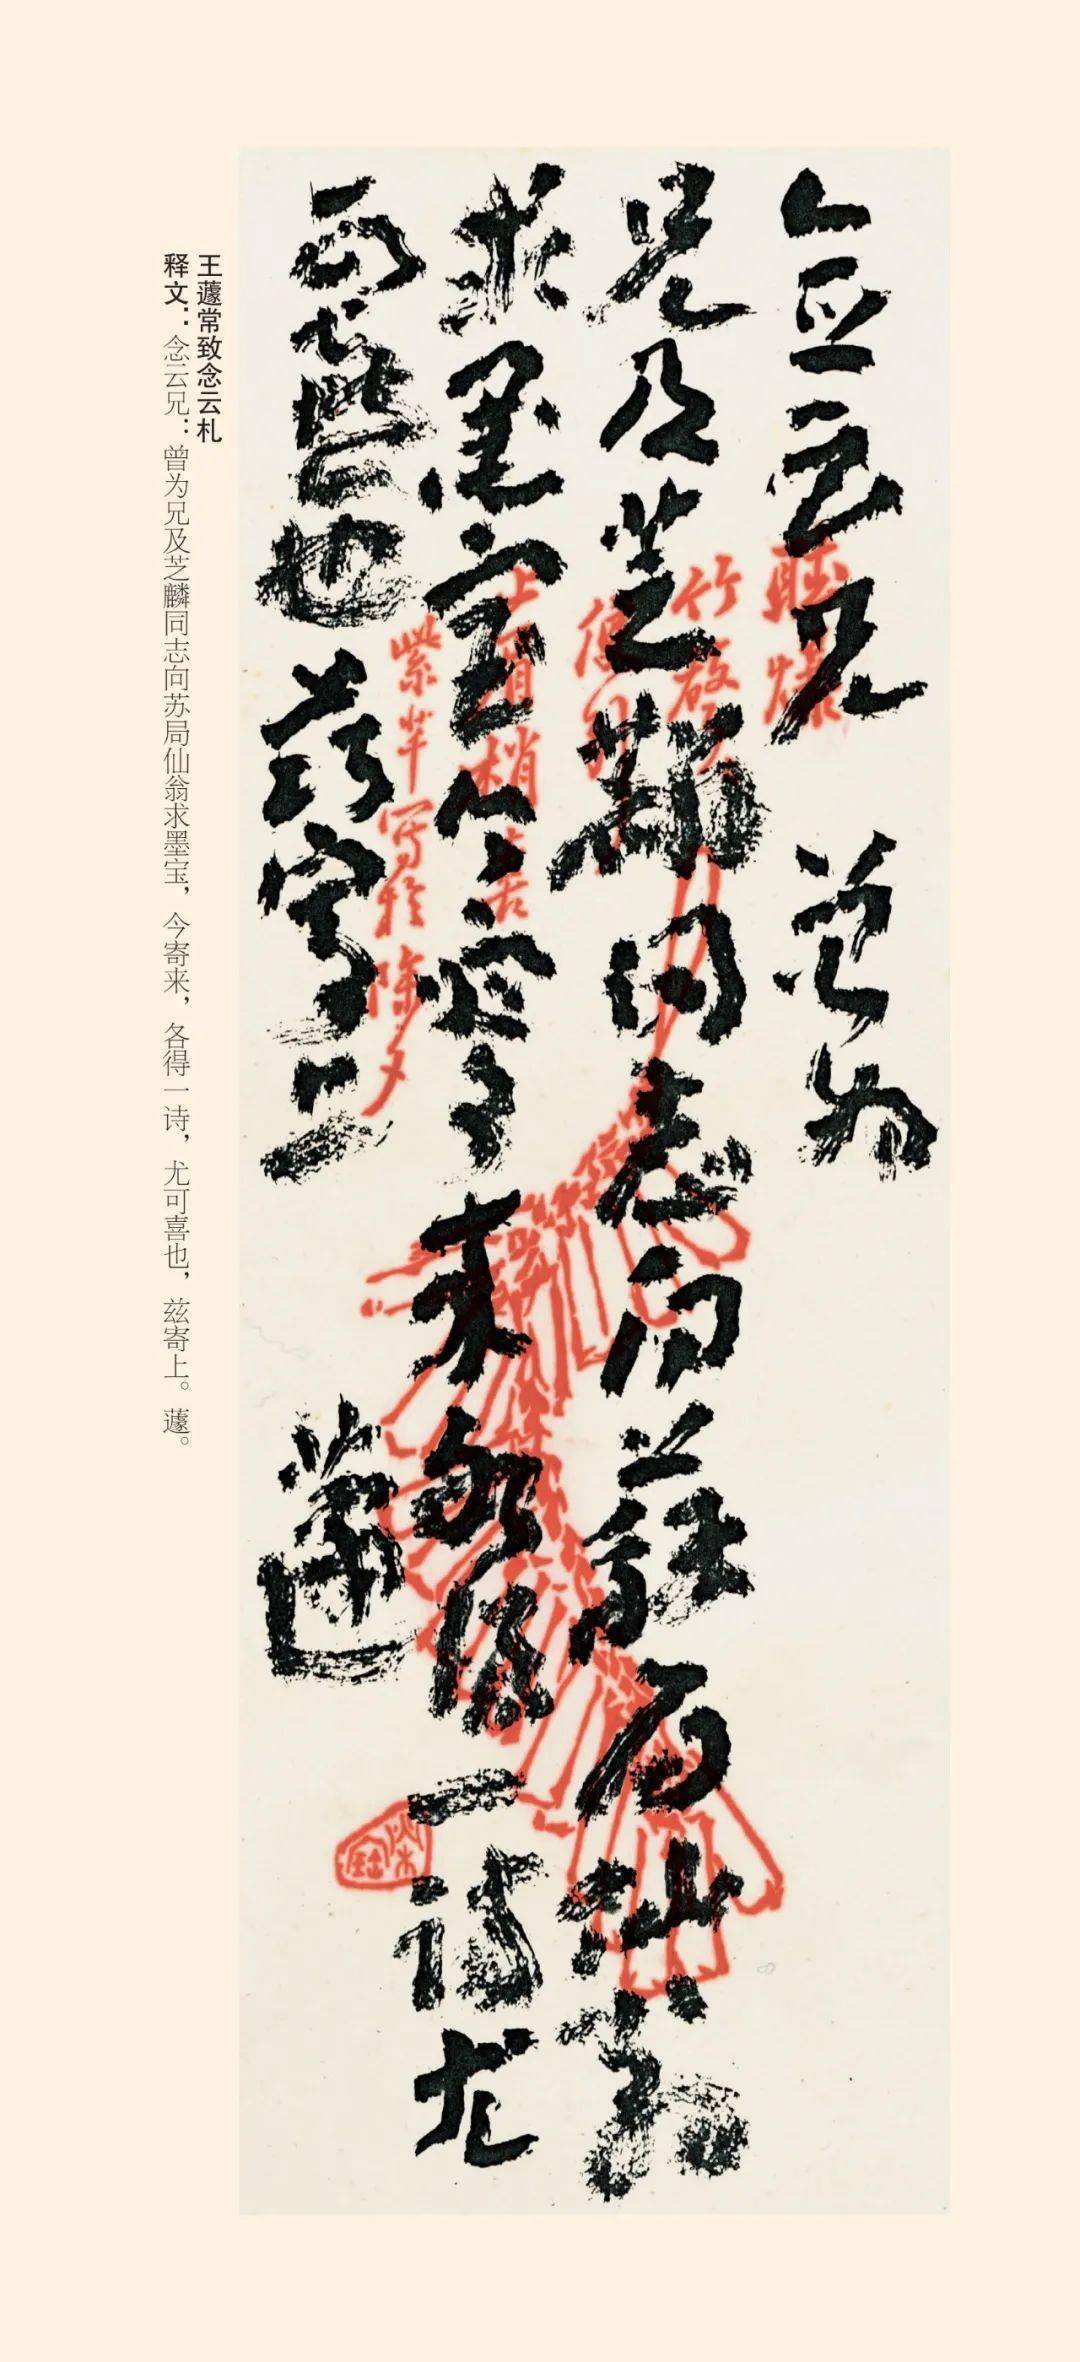 念云兄 曾为
兄及芝麟同志向蘇局仙翁
求墨宝今寄来各得一诗尤
可喜也兹寄上 蘧
除夕
王蘧常致念云札
释文：念云兄：曾为兄及芝麟同志向苏局仙翁求墨宝，今寄来，各得一诗，尤可喜也，兹寄上。蘧。